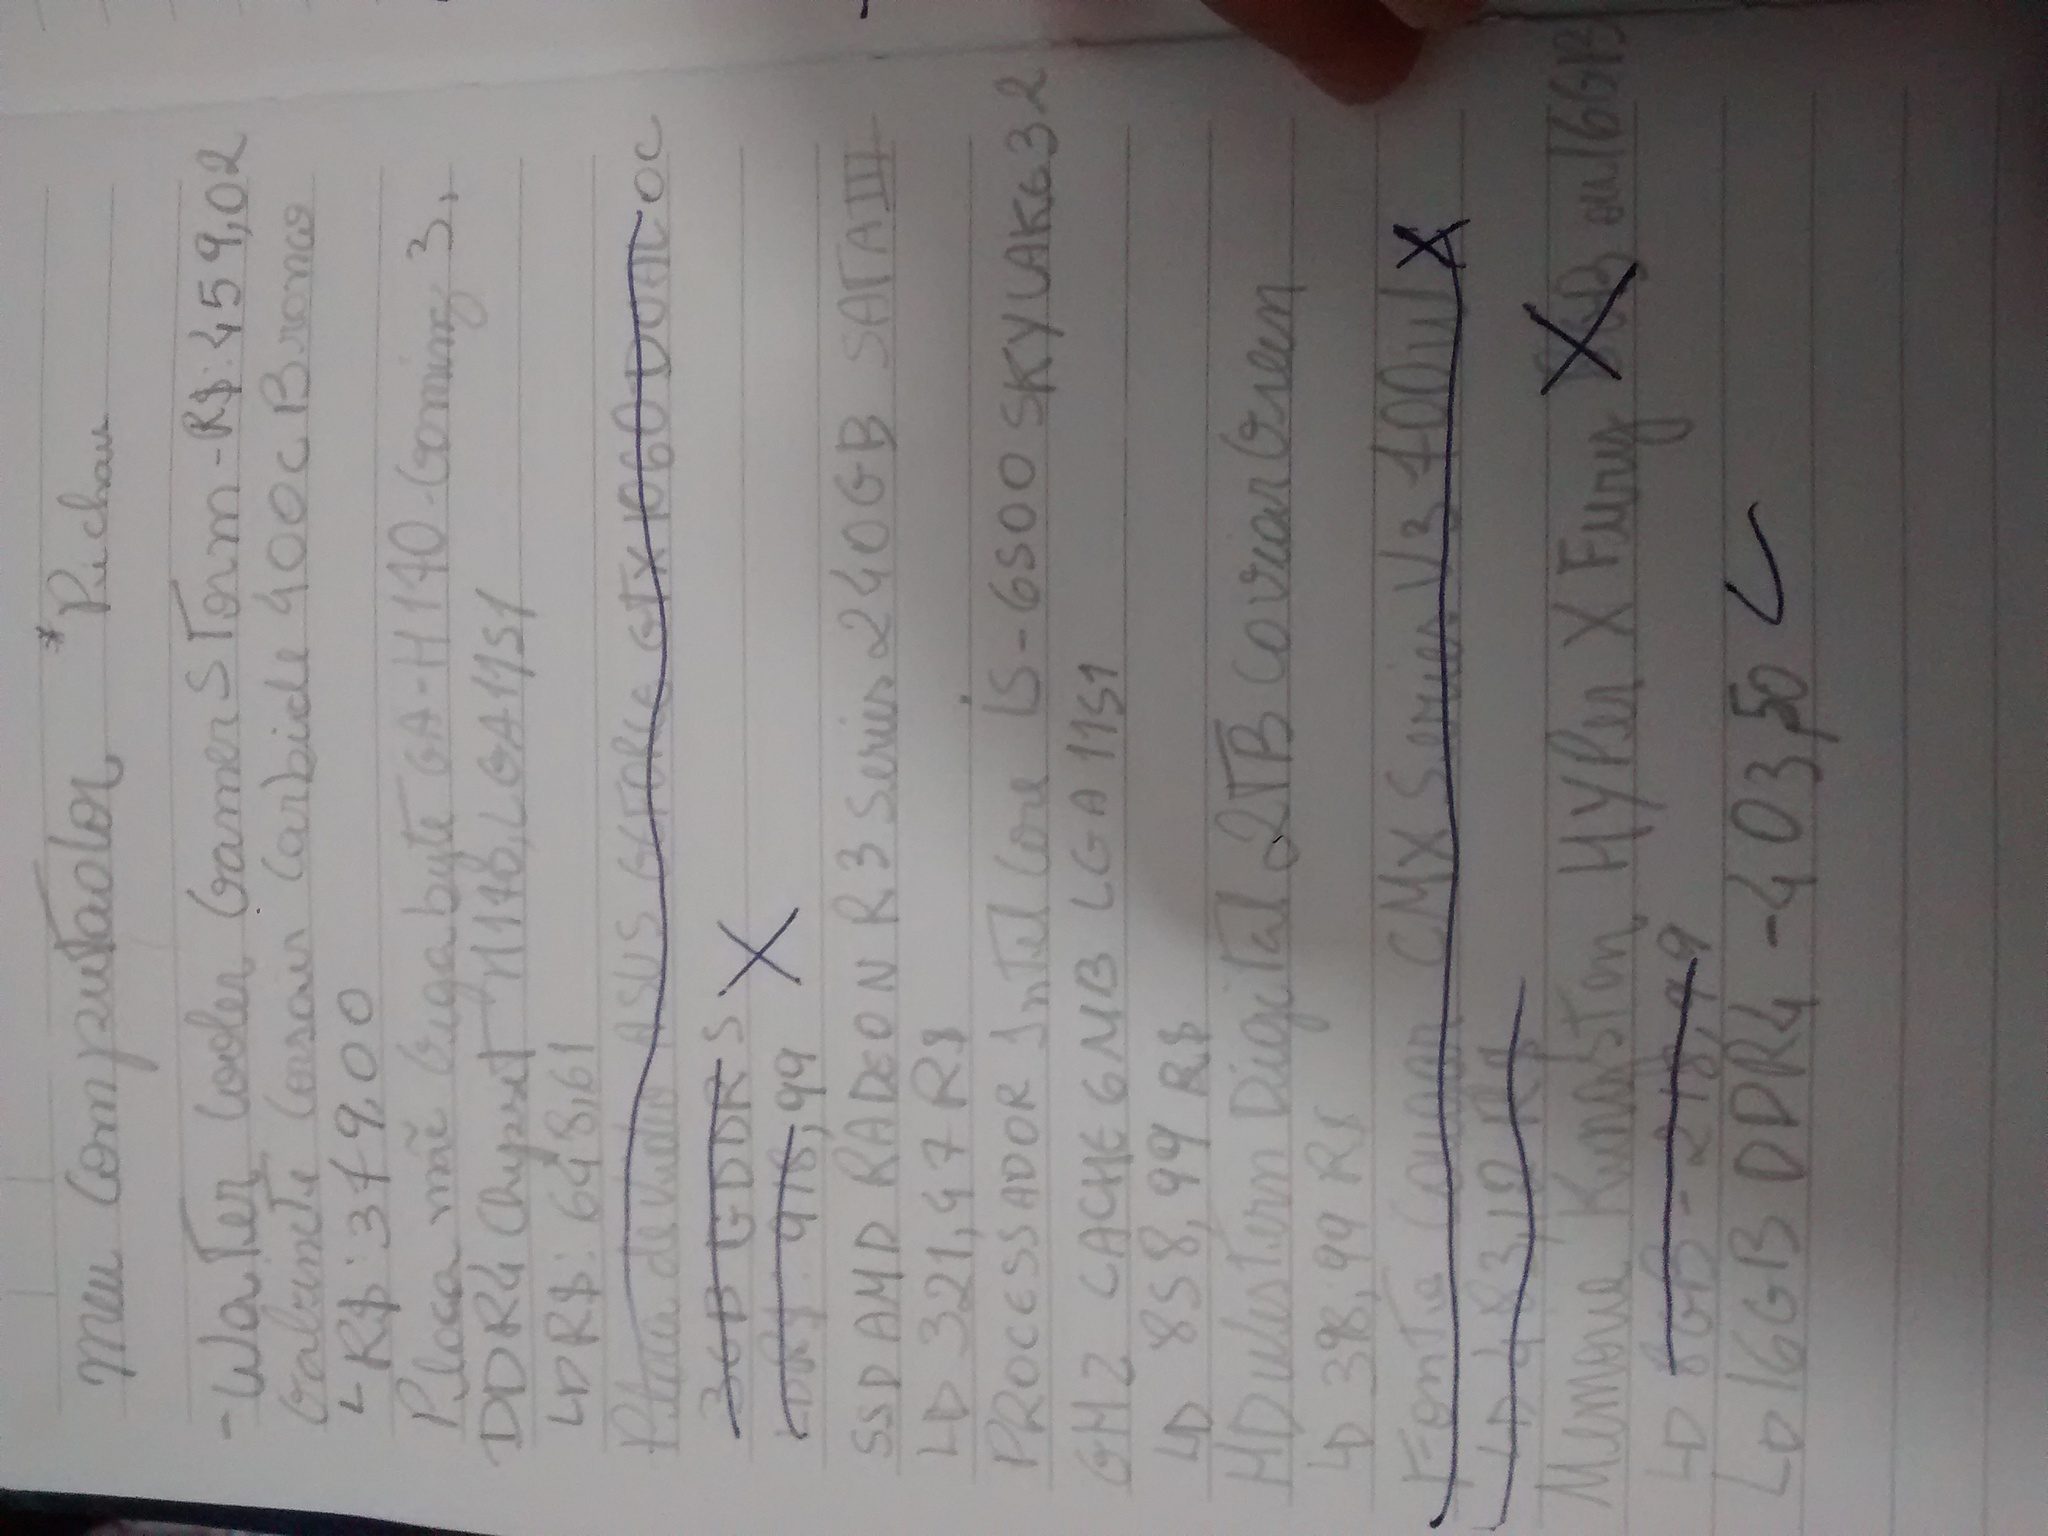 Meu Computador * Pichau
- Water Cooler Gamer STorm - R$: 459,02
Gabinete Corsair Carbide 400C Branco
↳ R$: 379,00
Placa mãe Gigabyte GA-H170-Gaming 3,
DDR4 Chipset H170, LGA1151
↳ R$: 648,61
Placa de Vídeo ASUS GEFORCE GTX 1060 DUAL OC
3GB GDDR5 X
↳ R$: 978,99
SSD AMD RADEON R3 Series 240GB SATA III
↳ 321,47 R$
PROCESSADOR Intel Core i5-6500 SKYLAKE 3.2
GHZ CACHE 6MB LGA 1151
↳ 858,99 R$
HD Western Digital 2TB Caviar Green
↳ 398,99 R$
Fonte Cougar CMX Series V3 700W X
↳ 483,12 R$
Memoria Kingston HYPer X Fury 8GB ou 16GB
↳ 8GB - 218,99
↳ 16GB DDR4 - 403,50 ✓